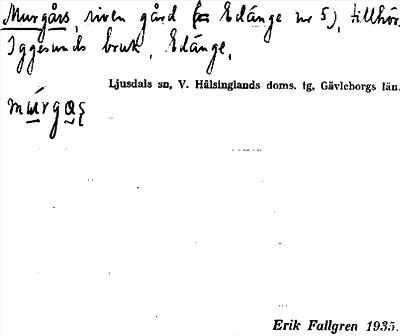 Murgårs, riven gård Edänge nr 5), tillhör.
Iggesunds bruk, Edänge.
Ljusdals sn, V. Hälsinglands doms. tg, Gävleborgs län.
Erik Fallgren 1935.